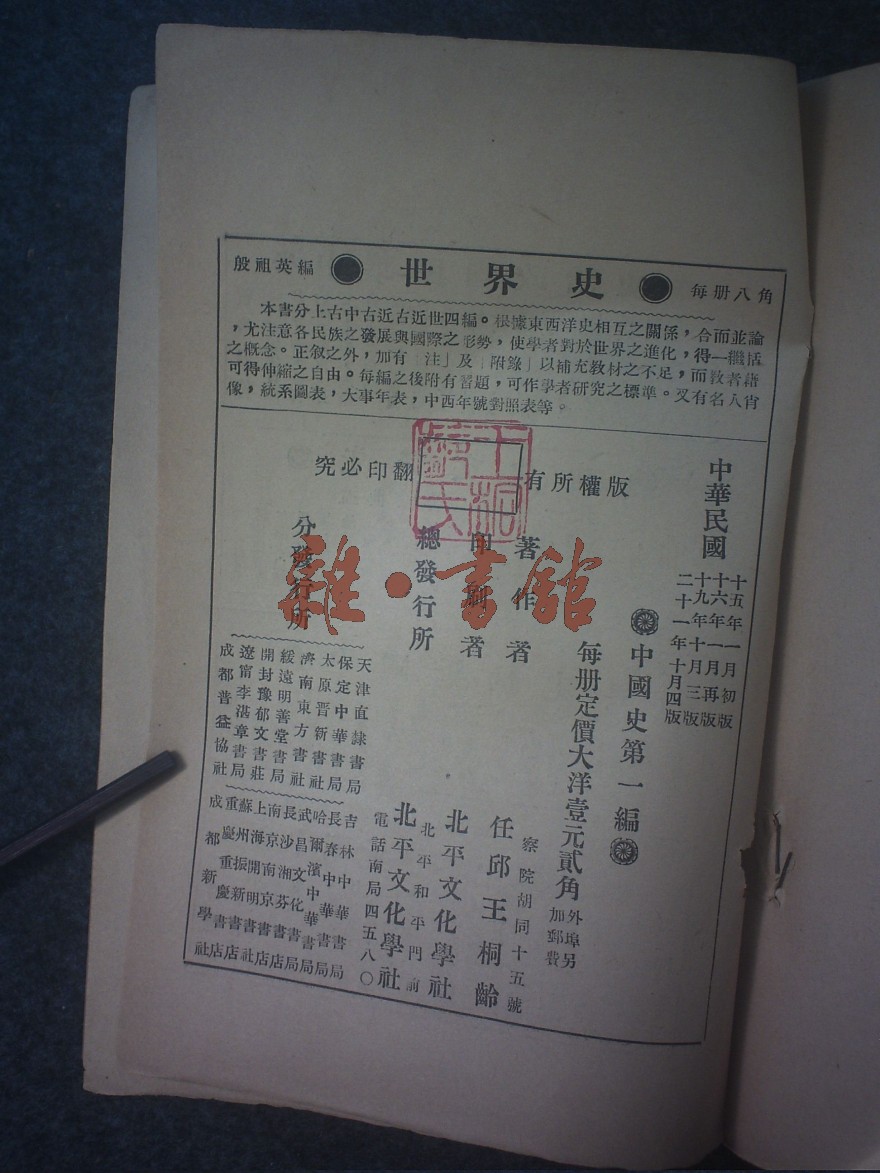 殷祖英編 ● 世界史 ● 每册八角
本書分上古中古近古近世四編。根據東西洋史相互之關係，合而並論
，尤注意各民族之發展與國際之形勢，使學者對於世界之進化，得一概括
之概念。正叙之外，加有「注」及「附錄」以補充教材之不足，而教者藉
可得伸縮之自由。每編之後附有習題，可作學者研究之標準。又有名人肖
像，統系圖表，大事年表，中西年號對照表等。
版權所有
翻印必究
中華民國
十五年一月初版
十六年一月再版
十九年十月三版
二十一年十月四版
中國史第一編
每册定價大洋壹元貳角
外埠另
加郵費
著作者
任邱王桐齡
察院胡同十五號
印刷者
北平文化學社
總發行所
北平和平門前
北平文化學社
電話南局四五八〇
分發行所
天津直隸書局
保定中華書局
太原晋新書社
濟南東方書社
綏遠明善堂書局
開封豫郁文書莊
遼甯李湛章書局
成都普益協社
吉林中華書局
長春中華書局
哈爾濱中華書局
武昌文化書局
長沙湘芬書店
南京南京書店
上海開明書店
蘇州振新書社
重慶重慶書店
成都新學社
雜·書館